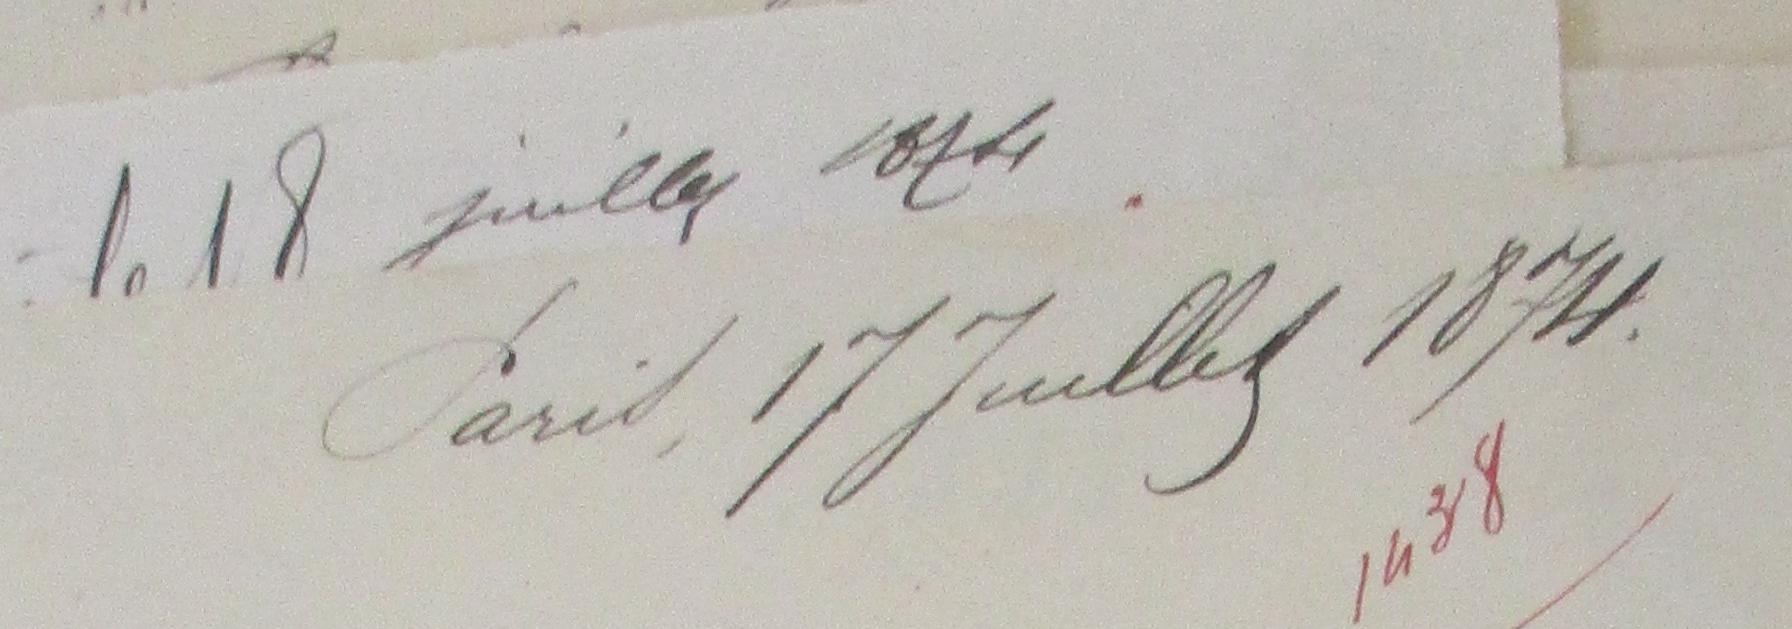 le 18 juillet 1874
Paris, 17 Juillet 1874.
1438